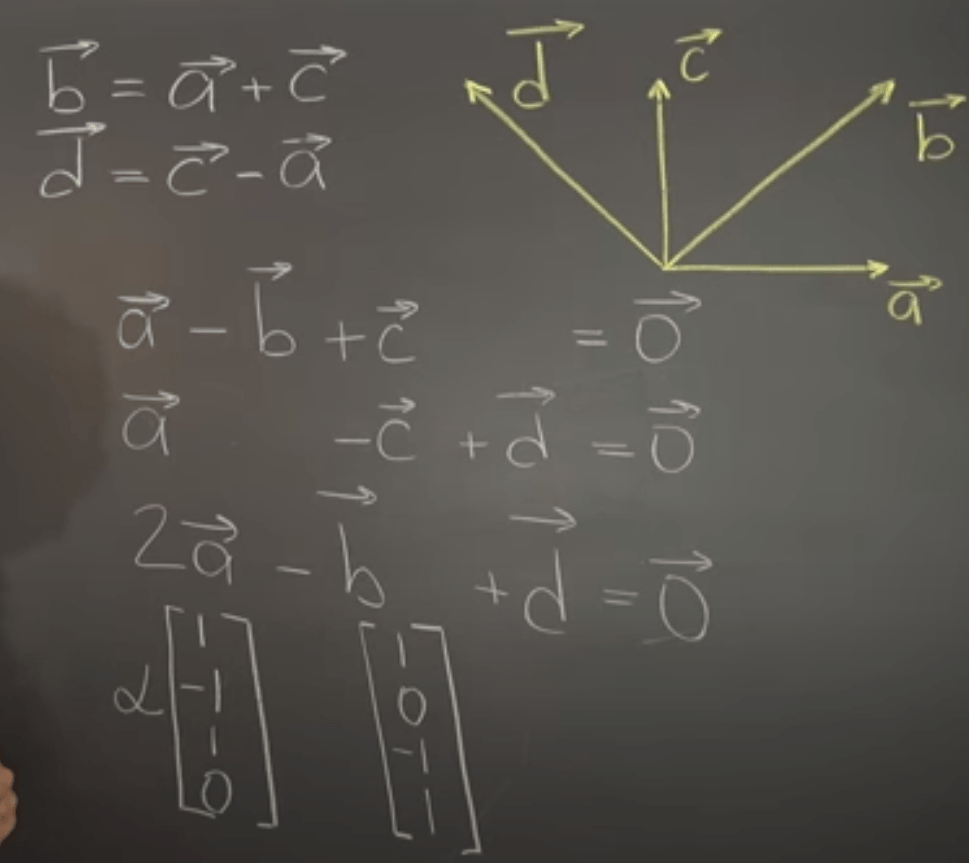 $\vec{b} = \vec{a} + \vec{c}$
$\vec{d} = \vec{c} - \vec{a}$
$\vec{d}$
$\vec{c}$
$\vec{b}$
$\vec{a}$
$\vec{a} - \vec{b} + \vec{c} = \vec{0}$
$\vec{a} - \vec{c} + \vec{d} = \vec{0}$
$2\vec{a} - \vec{b} + \vec{d} = \vec{0}$
$\alpha \begin{bmatrix} 1 \\ -1 \\ 1 \\ 0 \end{bmatrix} \quad \begin{bmatrix} 1 \\ 0 \\ -1 \\ 1 \end{bmatrix}$